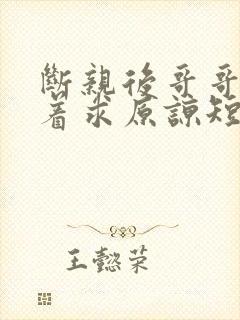 斷親後哥哥
着求原諒短
王懿荣